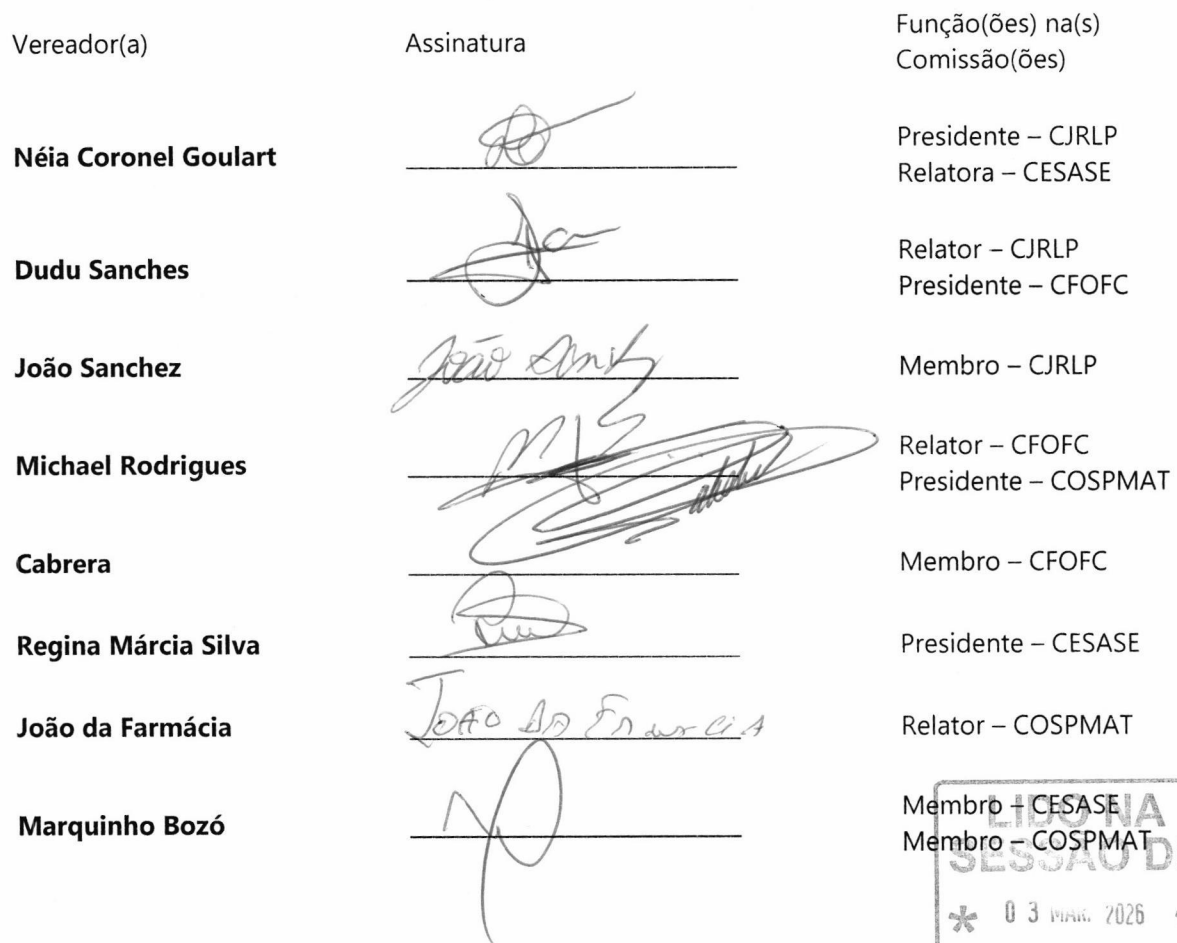 Vereador(a) Assinatura Função(ões) na(s)
Comissão(ões)
Néia Coronel Goulart Presidente – CJRLP
Relatora – CESASE
Dudu Sanches Relator – CJRLP
Presidente – CFOFC
João Sanchez João Membro – CJRLP
Michael Rodrigues Relator – CFOFC
Presidente – COSPMAT
Cabrera Membro – CFOFC
Regina Márcia Silva Presidente – CESASE
João da Farmácia JOÃO DA Relator – COSPMAT
Marquinho Bozó Membro – CESASE
Membro – COSPMAT
LIDO NA
SESSÃO D
* 03 MAR. 2026